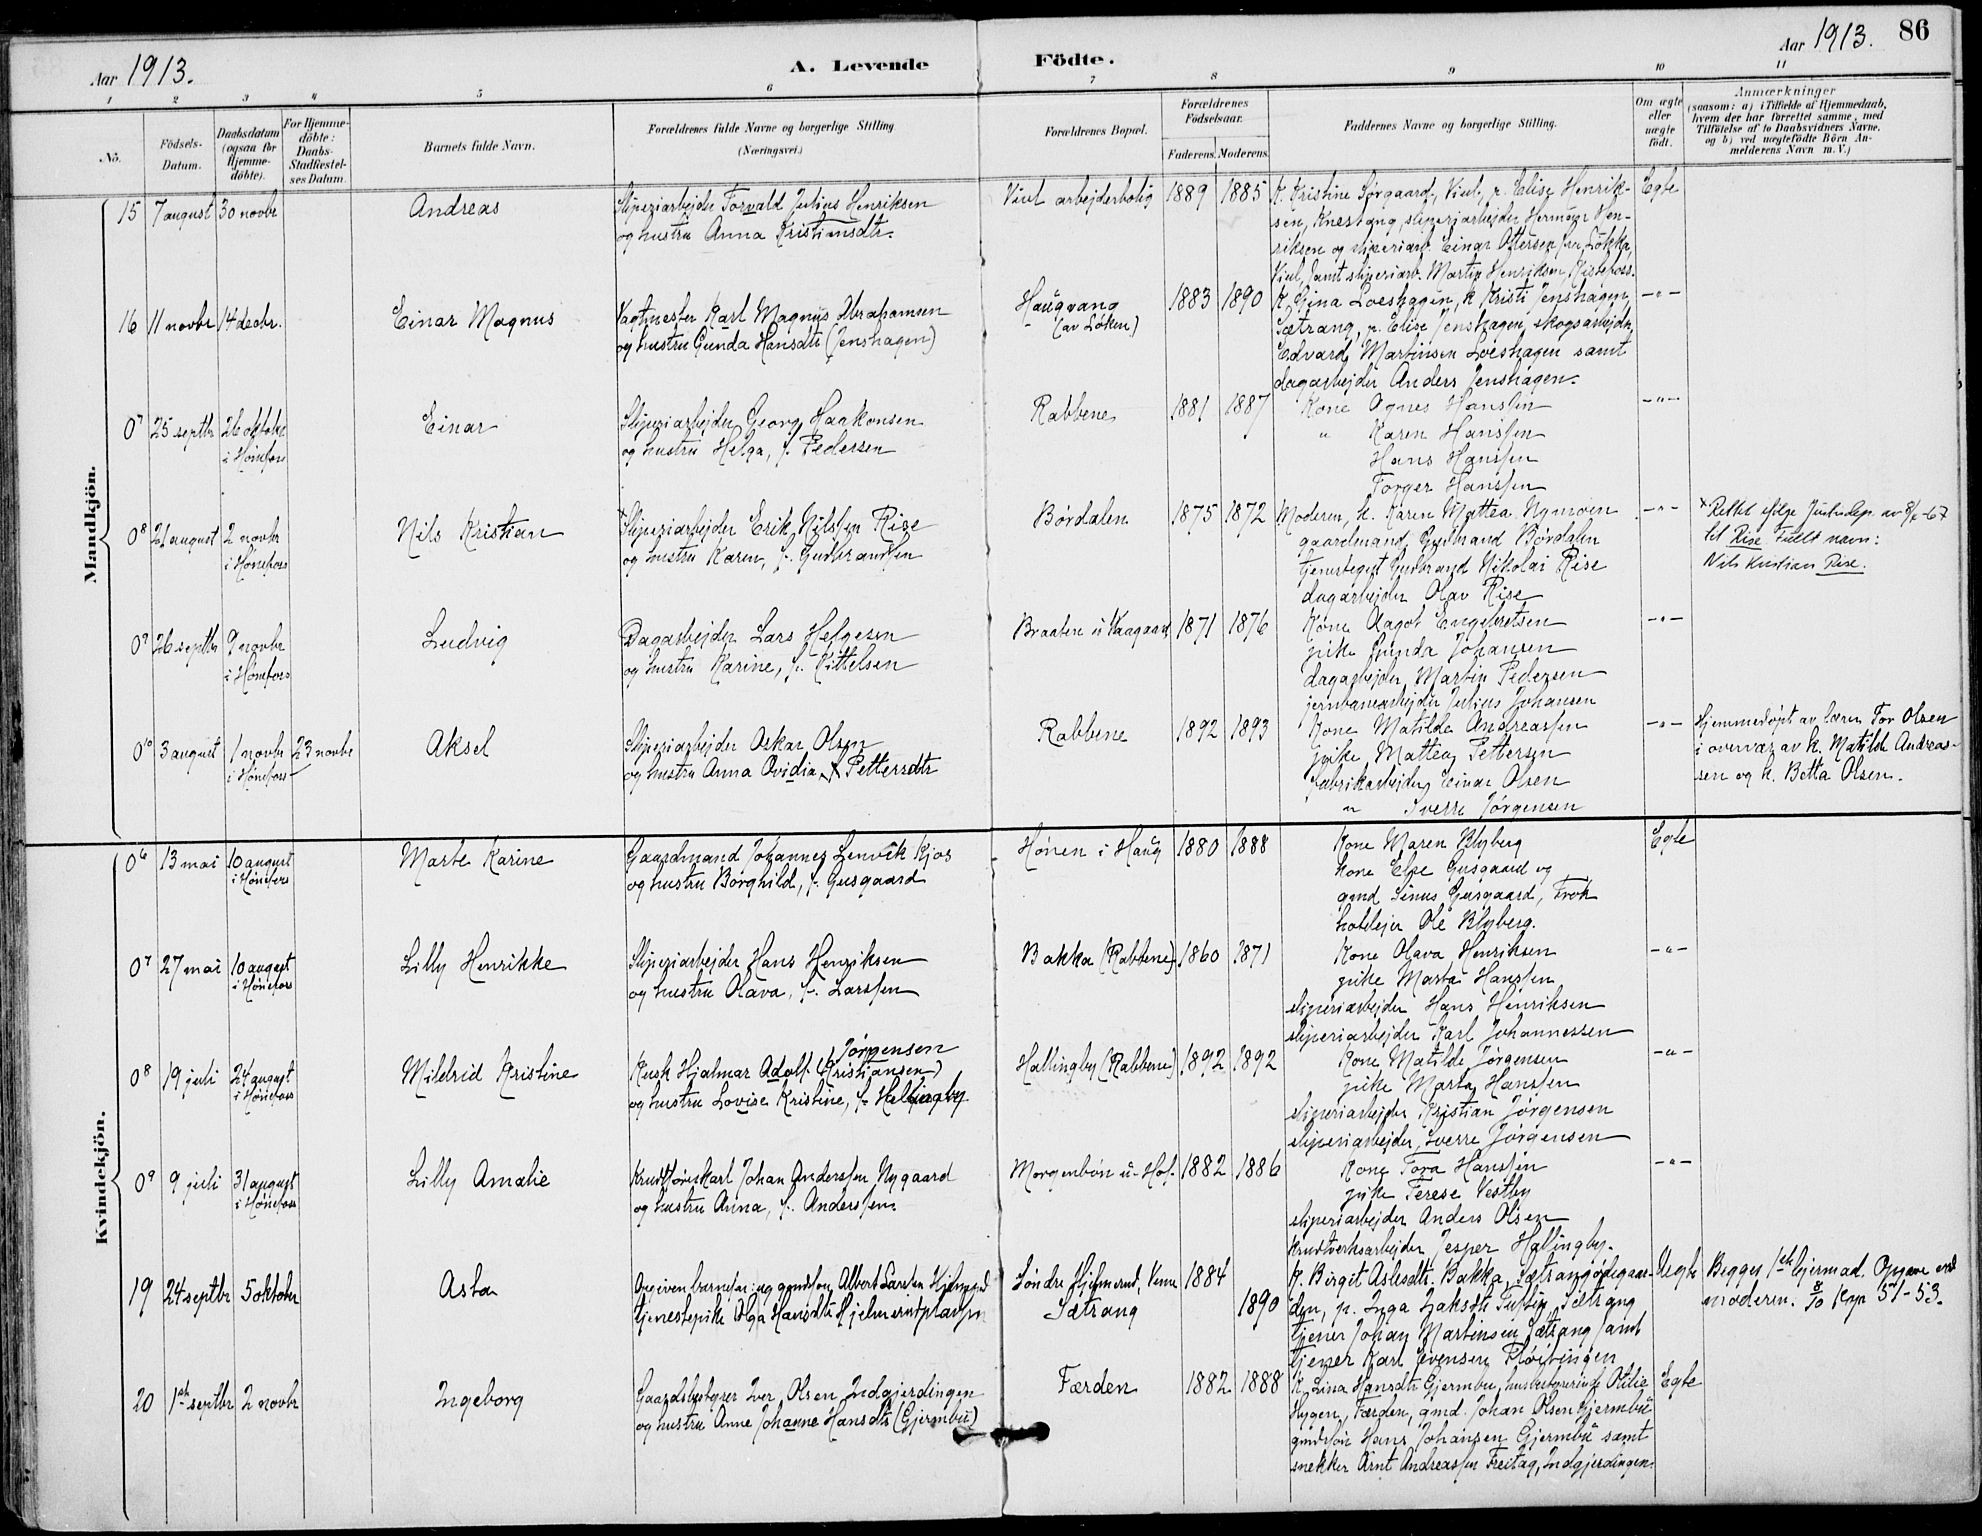 Aar 1913.
A. Levende Födte.
Aar 1913. 86
1 2 3 4 5 6 7 8 9 10 11
No.
Födsels-Datum.
Daabsdatum (ogsaa for Hjemme-döbte).
For Hjemme-döbte: Daabs-Stadfæstel-ses Datum.
Barnets fulde Navn.
Forældrenes fulde Navne og borgerlige Stilling
(Næringsvei.)
Forældrenes Bopæl.
Forældrenes Födselsaar.
Faderens. Moderens.
Faddernes Navne og borgerlige Stilling.
Om ægte eller uægte födt.
Anmærkninger
(saasom: a) i Tilfælde af Hjemmedaab,
hvem der har forrettet samme, med
Tilföielse af to Daabsvidners Navne,
og b) ved uægtefödte Börn An-
melderens Navn m. V.)
Mandkjön.
15 7 august 30 novbr Andreas
Sliperiarbejder Torvald Julius Henriksen
og hustru Anna Kristiansdtr.
Viul arbejderbolig 1889 1885
K. Kristine Sørgaard, Viul, p. Elise Henrik-
sen, Knestang, sliperiarbejder Herman Hen-
riksen og sliperiarb. Einar Ottersen Løkka,
Viul, samt sliperiarb. Martin Henriksen, Ristefoss.
Egte
16 11 novbr 14 decbr. Einar Magnus
Vagtmester Karl Magnus Abrahamsen
og hustru Gunda Hansdtr (Jenshagen)
Haugvang
(av Løken)
1883 1890
K. Gina Loeshagen, k Kristi Jenshagen,
Sætrang, p. Elise Jenshagen, skogsarbejder
Edvard Martinsen Loeshagen samt
dagarbejder Anders Jenshagen.
-"-
0 7 25 septbr 26 oktober
i Hønefoss
Einar
Sliperiarbejder Georg Haakonsen
og hustru Helga, f. Pedersen
Rabbene 1881 1887
Kone Agnes Hansen
" Karen Hanssen
Hans Hanssen
Torger Hanssen
-"-
0 8 21 august 2 novbr
i Hønefoss
Nils Kristian
× Sliperiarbejder Erik Nilssen Rise
og hustru Karen, f. Gudbrandsen
Børdalen 1875 1872
Moderen, k. Karen Mattea Nymoen
gaardmand Gudbrand Børdalen
tjenestegut Gudbrand Nikolai Rise
dagarbejder Olav Rise
-"-
× Rettet ifølge Justisdep. av 8/6-67
til Rise. Fullt navn:
Nils Kristian Rise.
0 9 26 septbr 9 novbr
i Hønefoss
Ludvig
Dagarbejder Lars Helgesen
og hustru Karine, f. Kittelsen
Braaten u Vaagaard 1871 1876
Kone Dagot Engebretsen
pike Gunda Johansen
dagarbejder Martin Pedersen
jernbanearbejder Julius Johansen
-"-
0 10 3 august 1 novbr
i Hønefoss
23 novbr
Aksel
Sliperiarbejder Oskar Olsen
og hustru Anna Ovidia Pettersdtr
Rabbene 1892 1893
Kone Matilde Andreassen
pike Mattea Pettersen
fabrikarbejder Einar Olsen
" Sverre Jørgensen
-"-
Hjemmedøpt av lærer Tor Olsen
i overvær av k. Matilde Andreas-
sen og k. Betta Olsen.
Kvindekjön.
0 6 13 mai 10 august
i Hønefoss
Marte Karine
Gaardmand Johannes Lenvik Kjos
og hustru Borghild, f. Gusgaard
Hønen i Haug 1880 1888
Kone Maren Blyberg
kone Else Gusgaard og
gmd Sinus Gusgaard,
hotelejer Ole Blyberg.
Egte
0 7 27 mai 10 august
i Hønefoss
Lilly Henrikke
Sliperiarbejder Hans Henriksen
og hustru Olava, f. Larssen
Bakka (Rabbene) 1860 1871
Kone Olava Henriksen
pike Marta Hanssen
sliperiarbejder Hans Henriksen
sliperiarbejder Karl Johannessen
-"-
0 8 19 juli 24 august
i Hønefoss
Mildrid Kristine
Jørgensen
Kusk Hjalmar Adolf (Kristiansen)
og hustru Lovise Kristine, f. Hellingby
Hallingby (Rabbene) 1892 1892
Kone Matilde Jørgensen
pike Marta Hanssen
sliperiarbejder Kristian Jørgensen
sliperiarbejder Sverre Jørgensen
-"-
0 9 9 juli 31 august
i Hønefoss
Lilly Amalie
Krudtkjørekarl Johan Anderssen Nygaard
og hustru Anna, f. Anderssen
Morgenbøn u. Hof. 1882 1886
Kone Tora Hanssen
pike Terese Vestby
sliperiarbejder Anders Olsen
krudtverksarbejder Jesper Hallingby.
-"-
19 24 septbr 5 oktober Asta
Opgiven barnefar: ug gmdsøn Albert Larsen Hjelmerud
tjenestepike Olga Hansdtr Hjelmerudplassen
Søndre Hjelmerud, Veme
Sætrang
1884
1890
K. Birgit Aslesdtr. Bakka, Sætrangødegaar-
den, p. Inga Isaksdtr Tuftin, Sætrang
tjener Johan Martinsen Sætrang samt
tjener Karl Evensen Fløitingen
Uegte
Begges 1ste leiermaal. Opgave ved
moderen. 8/10 Kop 51-53.
20 1ste septbr 2 novbr Ingeborg
Gaardsbestyrer Iver Olsen Indgjerdingen
og hustru Anne Johanne Hansdtr (Gjermbu)
Færden 1882 1888
K Lina Hansdtr Gjermbu, husbestyrerinde Otilie
Hygen, Færden, gmd. Johan Olsen Gjermbu
gmdsøn Hans Johansen Gjermbu samt
snekker Arnt Andreassen Freitag, Indgjerdingen.
Egte